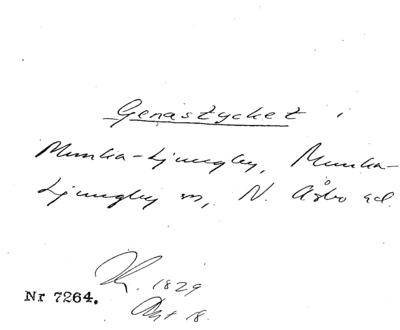 Genastycket i
Munka-Ljungby, Munka-
Ljungby sn, N. Åsbo hd.
1829
Nr 7264.
18